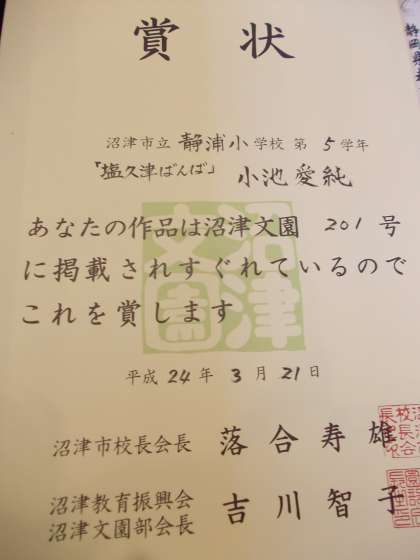 賞 状
沼津市立 静浦小学校 第 5 学年
「塩久津ばんば」 小池愛純
あなたの作品は沼津文園 201 号
に掲載されすぐれているので
これを賞します
沼津文園
平成 24 年 3 月 21 日
沼津市校長会長 落合寿雄
沼津教育振興会
沼津文園部会長 吉川智子